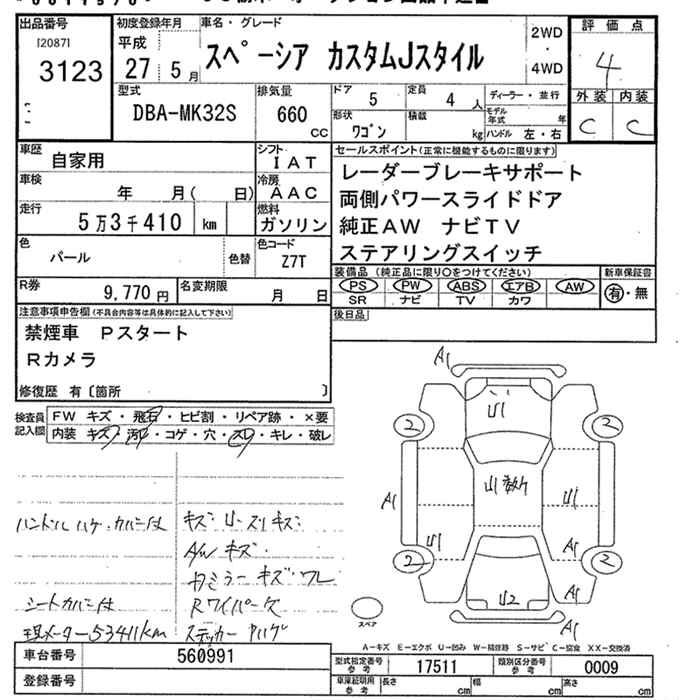 出品番号
[2087]
3123
初度登録年月
平成
27年5月
車名・グレード
スペーシア カスタムJスタイル
2WD
・
4WD
評価点
4
外装 内装
C C
型式
DBA-MK32S
排気量
660
cc
ドア
5
定員
4人
ディーラー・並行
形状
ワゴン
積載
kg
モデル年式 年
ハンドル 左・右
車歴
自家用
シフト
IAT
車検
年 月( 日)
冷房
AAC
走行
5万3千410 km
燃料
ガソリン
色
パール
色替
色コード
Z7T
R券
9,770円
名変期限
月 日
セールスポイント(正常に機能するものに限ります)
レーダーブレーキサポート
両側パワースライドドア
純正AW ナビTV
ステアリングスイッチ
装備品(純正品に限り○をつけてください)
新車保証書
PS PW ABS エアB AW
SR ナビ TV カワ
有・無
後日品
注意事項申告欄(不具合内容等は具体的に記入して下さい)
禁煙車 Pスタート
Rカメラ
修復歴 有〔箇所 〕
検査員記入欄
FW キズ・飛石・ヒビ割・リペア跡・×要
内装 キズ・汚レ・コゲ・穴・スレ・キレ・破レ
ハンドルハゲ・カバー付
シートカバー付
現メーター53411km
キズ・U・ズリキズ
A/W キズ・
ミラーキズ・ワレ
Rワイパーケズ
ステッカーハゲ
A1
U1
2
2
A1
U1数ヶ所
U1
A1
U1
A1
2
2
U2
A1
スペア
A1
A−キズ E−エクボ U−凹み W−補修跡 S−サビ C−腐食 XX−交換済
車台番号
560991
登録番号
型式指定番号
参考
17511
類別区分番号
参考
0009
車庫証明用
参考
長さ cm
幅 cm
高さ cm